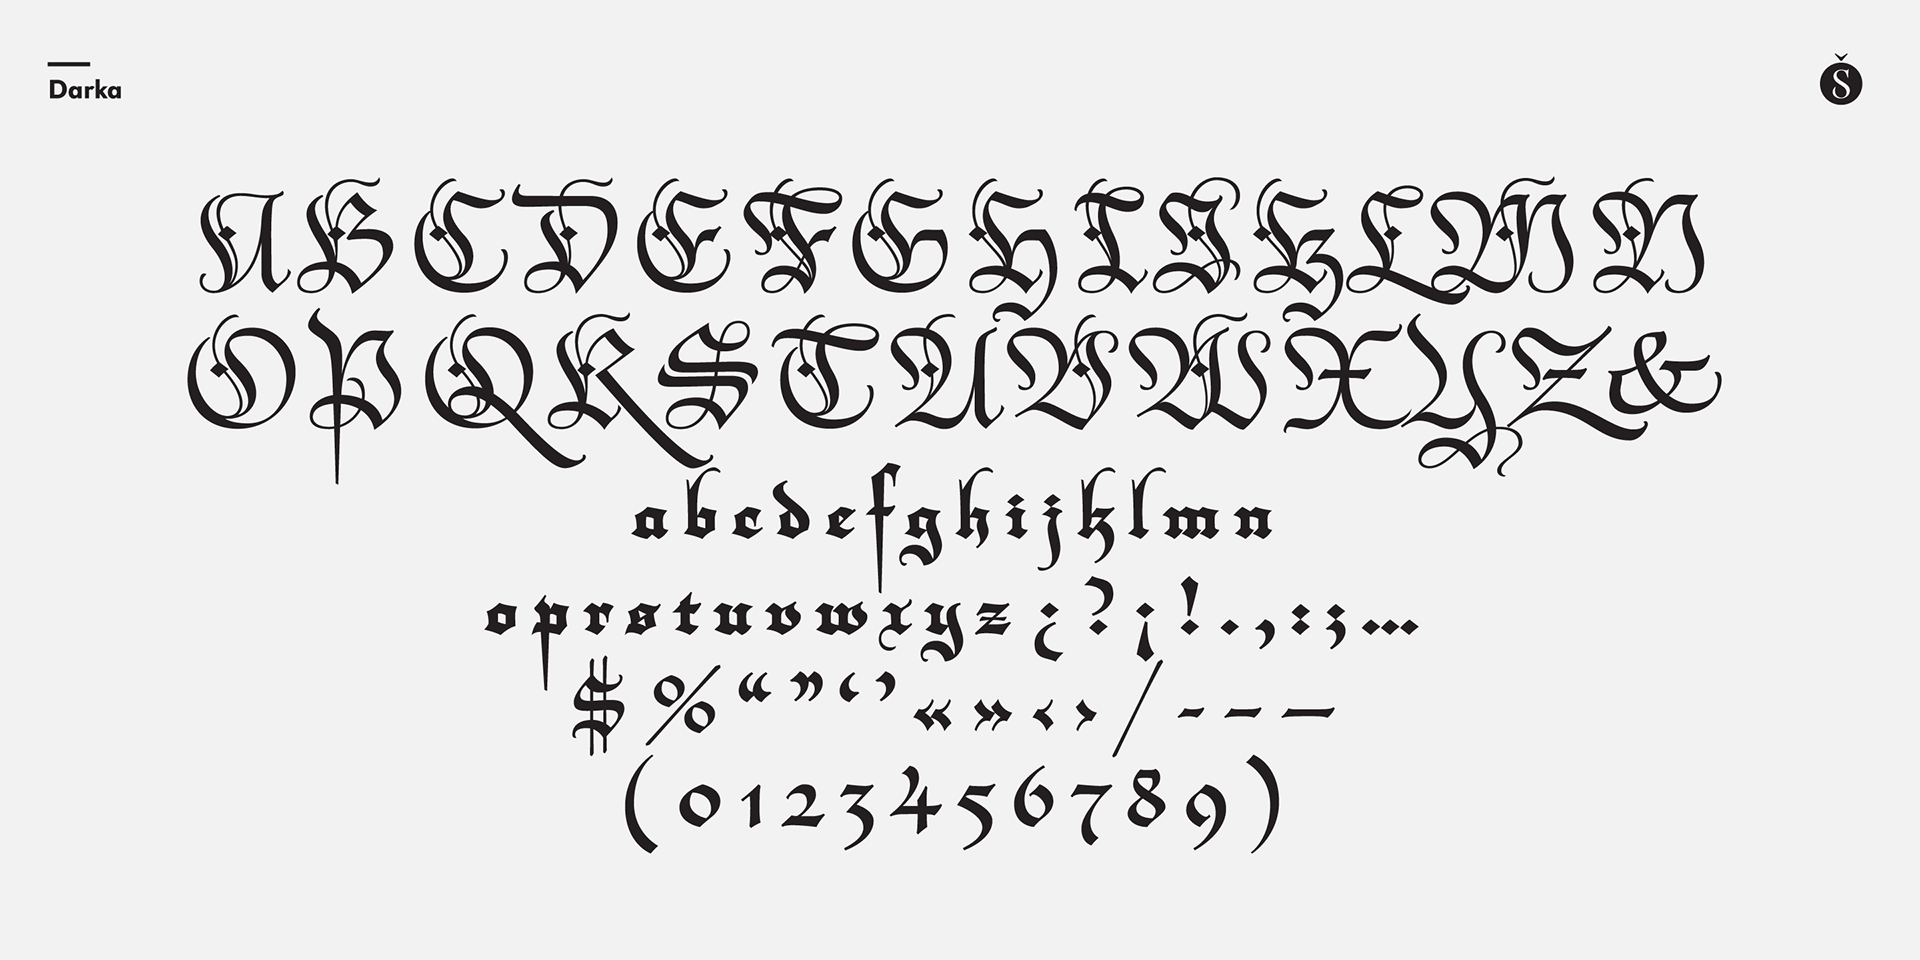 Darka
Š
A B C D E F G H I J K L M N
O P Q R S T U V W X Y Z &
a b c d e f g h i j k l m n
o p r s t u v w x y z ¿ ? ¡ ! . , : ; …
$ % “ ” ‘ ’ « » ‹ › / - – —
( 0 1 2 3 4 5 6 7 8 9 )